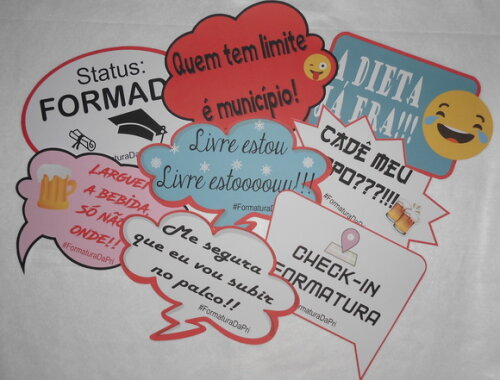 Status:
FORMAD
#FormaturaDaPri
Quem tem limite
é município!
A DIETA
JÁ ERA!!!
Livre estou
Livre estoooouu!!!
#FormaturaDaPri
CADÊ MEU
OPO???!!!
#FormaturaDaPri
LARGUEI
A BEBIDA,
SÓ NÃO
ONDE!!
#FormaturaDaPri
Me segura
que eu vou subir
no palco!!
#FormaturaDaPri
CHECK-IN
FORMATURA
#FormaturaDaPri